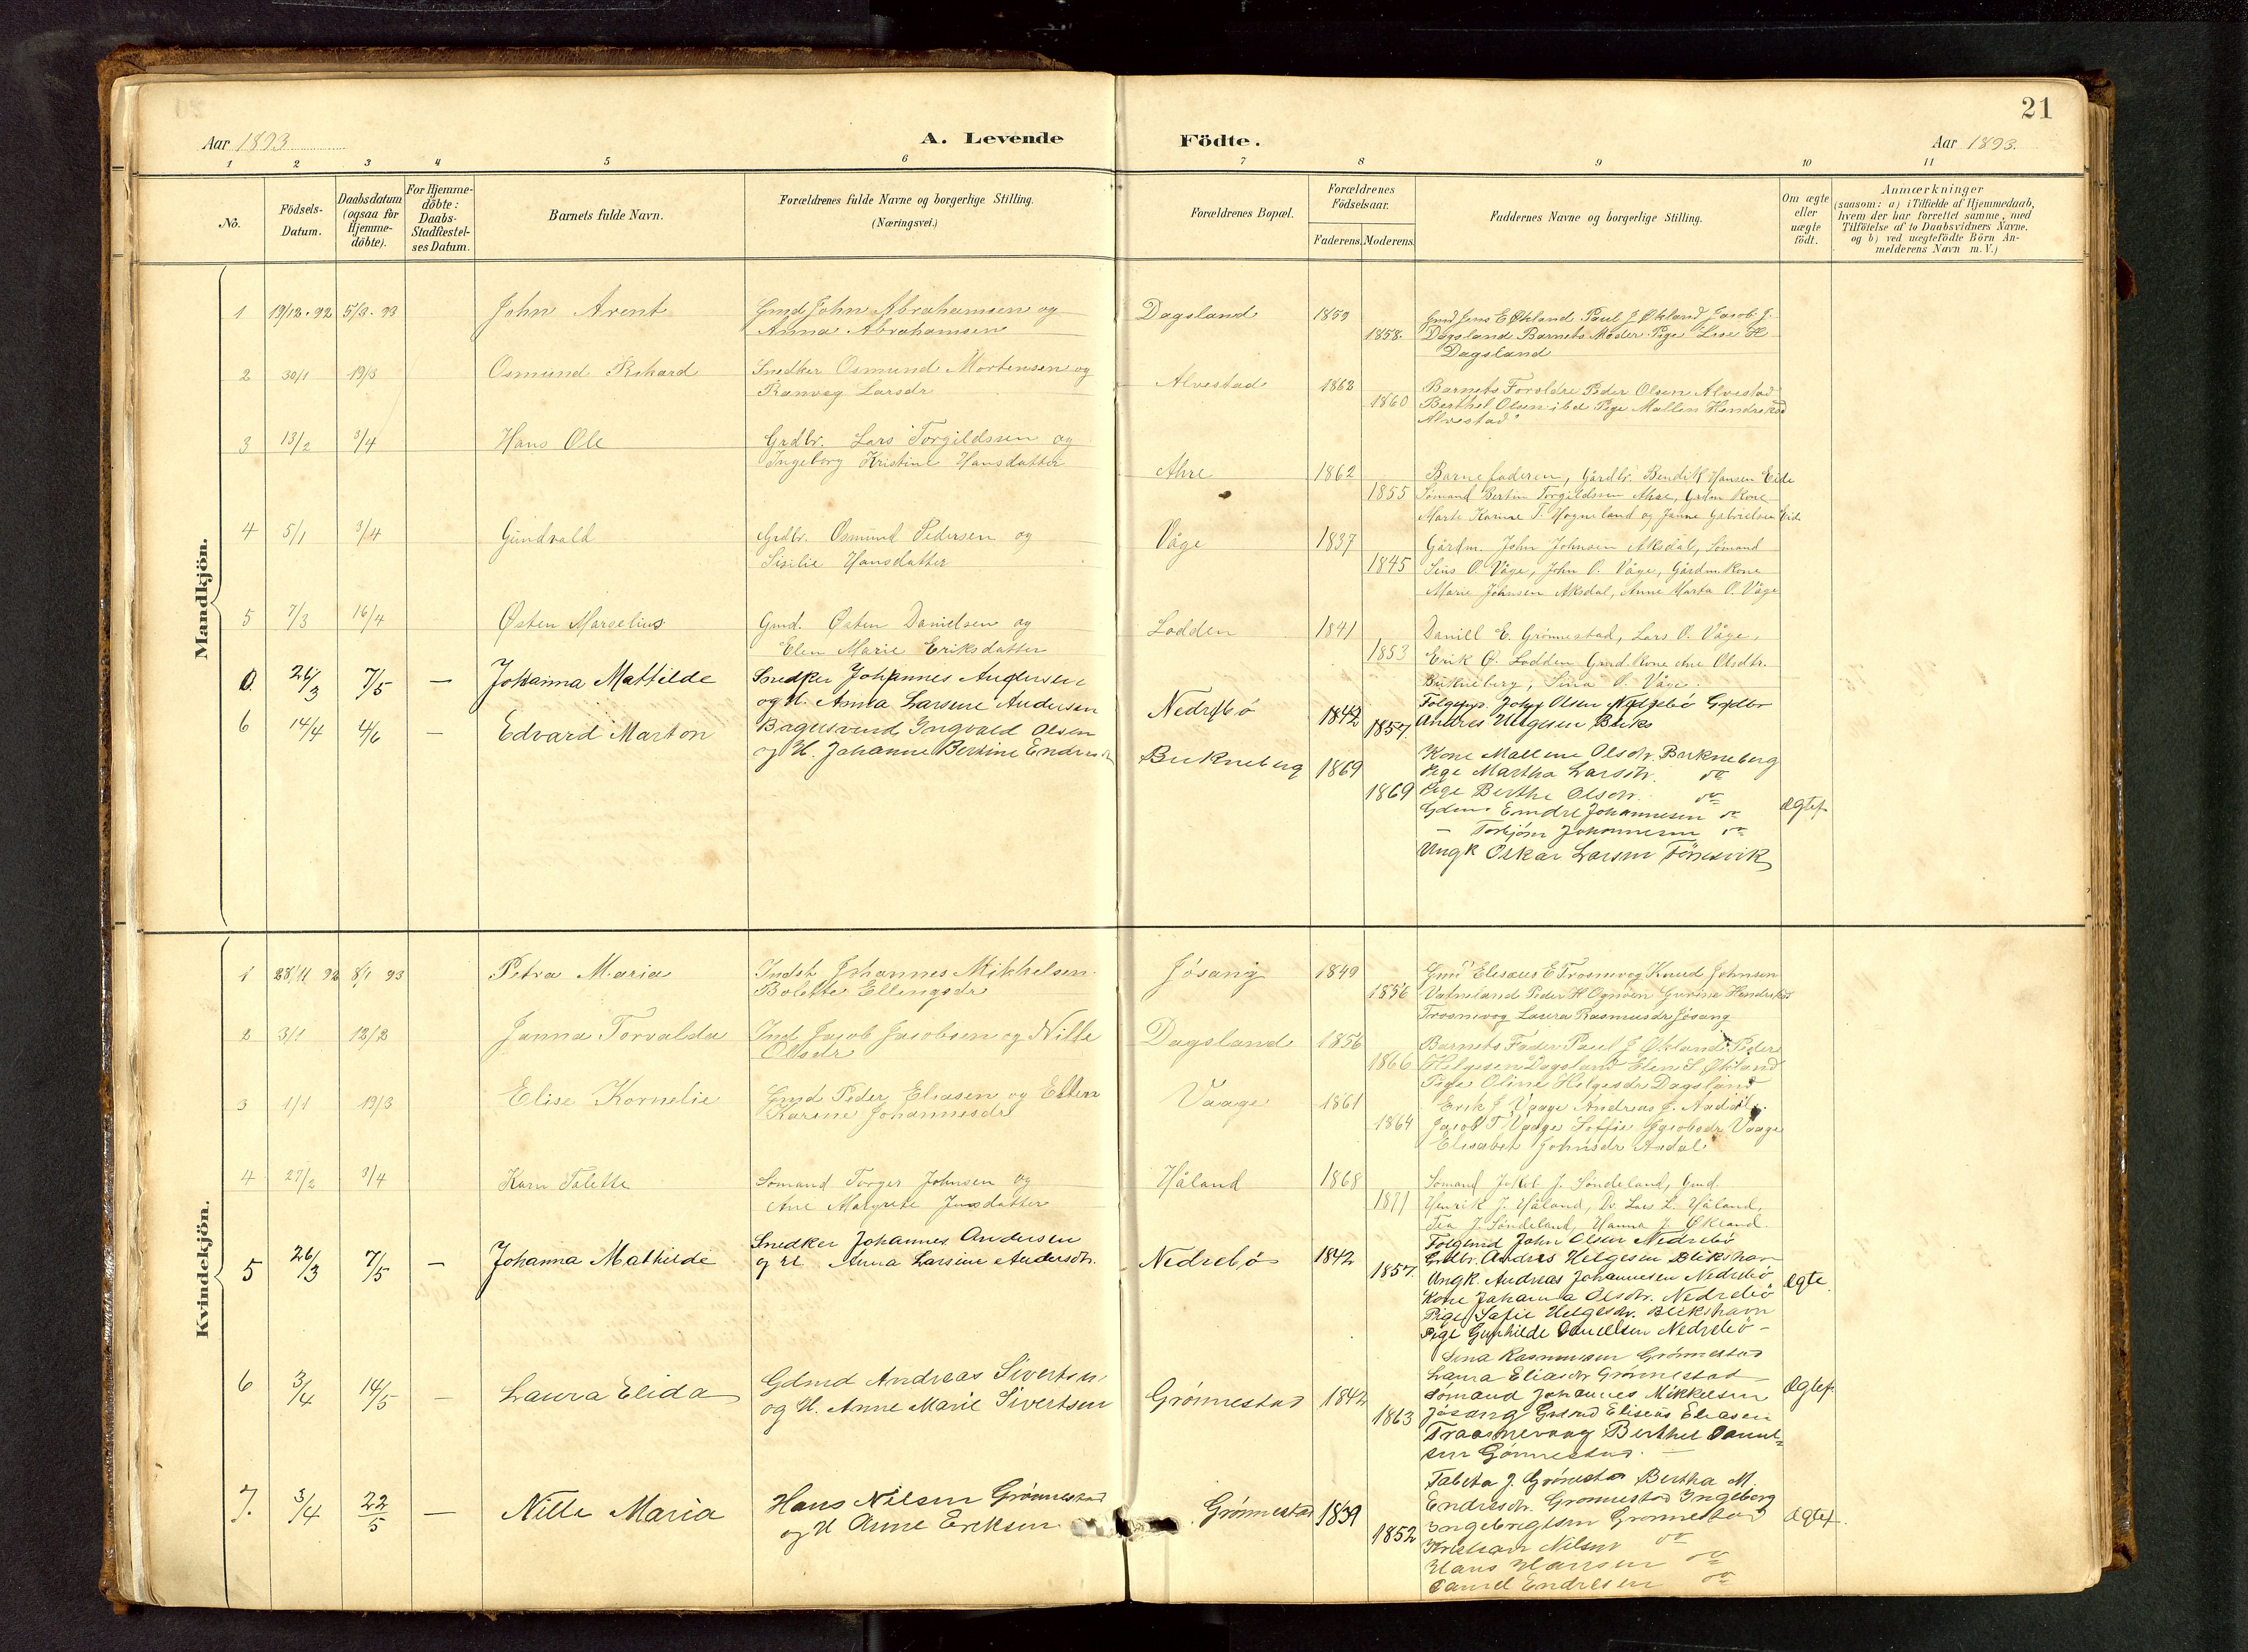 21
Aar 1893
A. Levende
Födte.
Aar 1893.
1 2 3 4 5 6 7 8 9 10 11
No.
Födsels-Datum.
Daabsdatum (ogsaa for Hjemmedöbte).
For Hjemmedöbte: Daabs-Stadfæstelses Datum.
Barnets fulde Navn.
Forældrenes fulde Navne og borgerlige Stilling. (Næringsvei.)
Forældrenes Bopæl.
Forældrenes Födselsaar.
Faderens. Moderens.
Faddernes Navne og borgerlige Stilling.
Om ægte eller uægte födt.
Anmærkninger
(saasom: a) i Tilfælde af Hjemmedaab, hvem der har forrettet samme, med Tilföielse af to Daabsvidners Navne, og b) ved uægtefödte Börn Anmelderens Navn m. V.)
Mandkjön.
1 19/12.92 5/3.93 John Arent
Gmd John Abrahamsen og
Anna Abrahamsen
Dagsland 1859 1858.
Gmd Jens E Økland Paul J Økland Jacob J.
Dagsland Barnets Moder Pige Lise H
Dagsland
2 30/1 19/3 Osmund Rikard
Snedker Osmund Mortensen og
Ranveg Larsdr
Alvestad 1863 1860
Barnets Forældre Peder Olsen Alvestad
Berthel Olsen ibd Pige Mallin Hendriksd
Alvestad
3 13/2 3/4 Hans Ole
Grdbr. Lars Torgildssen og
Ingeborg Kristine Hansdatter
Ahre 1862 1855
Barnefaderen, Gårdbr. Bendik Hansen Eide
Sömand Bertin Torgildssen Ahre, Grdm Kone
Marte Karine T. Hogneland og Janne Gabrielsen Eide
4 5/1 3/4 Gundvald
Grdbr. Osmund Pedersen og
Sisilie Hansdatter
Våge 1837 1845
Gårdm. John Johnsen Aksdal, Sömand
Sius O. Våge, John O. Våge, Gårdm. Kone
Marie Johnsen Aksdal, Anne Marta O. Våge
5 7/3 16/4 Østen Marselius
Gmd. Østen Danielsen og
Elen Marie Eriksdatter
Lodden 1841 1853
Daniel E. Grönnestad, Lars O. Våge,
Erik Ø. Lodden Gmd. Kone Ane Olsdtr.
Bukneberg, Sina O. Våge.
0. 26/3 7/5 — Johanna Mathilde
Snedker Johannes Andersen
og H. Anna Larsine Andersen
Nedrebö 1842 1857.
Folgem. John Olsen Nedrebö Grdbr
Andres Helgesen Buks
6 14/4 4/6 — Edvard Marton
Bagersvend Ingvald Olsen
og H. Johanne Bertine Endresdr
Bukneberg 1869 1869
Kone Mallene Olsdtr. Bukneberg
Pige Martha Larsdtr. do
Pige Berthe Olsdtr. do
Gdm. Endre Johannesen do
— Torbjörn Johannesen do
Ungk Oskar Larsen Fönesvik
Ægtef.
Kvindekjön.
1 28/11 92 8/1 93 Petra Maria
Indst Johannes Mikkelsen.
Bolette Ellingsdr
Jösang 1849 1856
Gmd Elisæus E Trosnevog Knud Johnsen
Vatneland Peder H Ognöen Gurine Hendriksd
Trosnevog Laura Rasmusdr Jösang
2 3/1 12/2 Janna Torvalda
Ind Jacob Jacobsen og Nille
Olsdr
Dagsland 1856 1866
Barnets Fader Paul J Økland Peder
Helgesen Dagsland Elen S Økland
Pige Oline Helgesdr Dagsland
3 1/1 19/3 Elise Kornelie
Gmd Peder Eliasen og Ellen
Karine Johannesdr
Vaage 1861 1864
Erik J Vaage Andreas J. Aadal
Jacob T Vaage Soffie Jacobsdr Vaage
Elisabet Johnsdr Aadal
4 27/2 3/4 Karn Talette
Sömand Torger Johnsen og
Ane Margrete Jensdatter
Håland 1868 1871
Sömand Jakob J. Söndeland, Gmd.
Henrik J. Håland, Do. Lars L. Håland,
Tea J. Söndeland, Hanna J. Økland.
5 26/3 7/5 — Johanna Mathilde
Snedker Johannes Andersen
og H. Anna Larsine Andersdtr.
Nedrebö 1842 1857.
Folgemd John Olsen Nedrebö
Grdbr. Andres Helgesen Blikshavn
Ungk. Andreas Johannesen Nedrebö
Kone Johanna Olsdtr. Nedrebö
Pige Sofie Helgesdr. Blikshavn
Pige Gunhilde Danielsen Nedrebö
Ægte.
6 3/4 14/5 — Laura Elida
Gdmd Andreas Sivertsen
og H. Anne Marie Sivertsen
Grönnestad 1842 1863
Sena Rasmussen Grönnestad
Laura Eliasdr Grönnestad
Sömand Johannes Mikkelsen
Jösang Grdmd Eliseus Eliasen
Traasnevaag Berthel Daniel-
sen Grönnestad.
Ægtef.
7. 3/4 22/5 — Nille Maria
Hans Nilsen Grönnestad
og H Anne Eriksen
Grönnestad 1839 1852
Tabeta J. Grönnestad Bertha M.
Endresdr. Gronnestad Ingeborg
Ingebrigtsen Gronnestad
Kristian Nilsen do
Hans Hansen do
Daniel Endresen do
Ægtef.